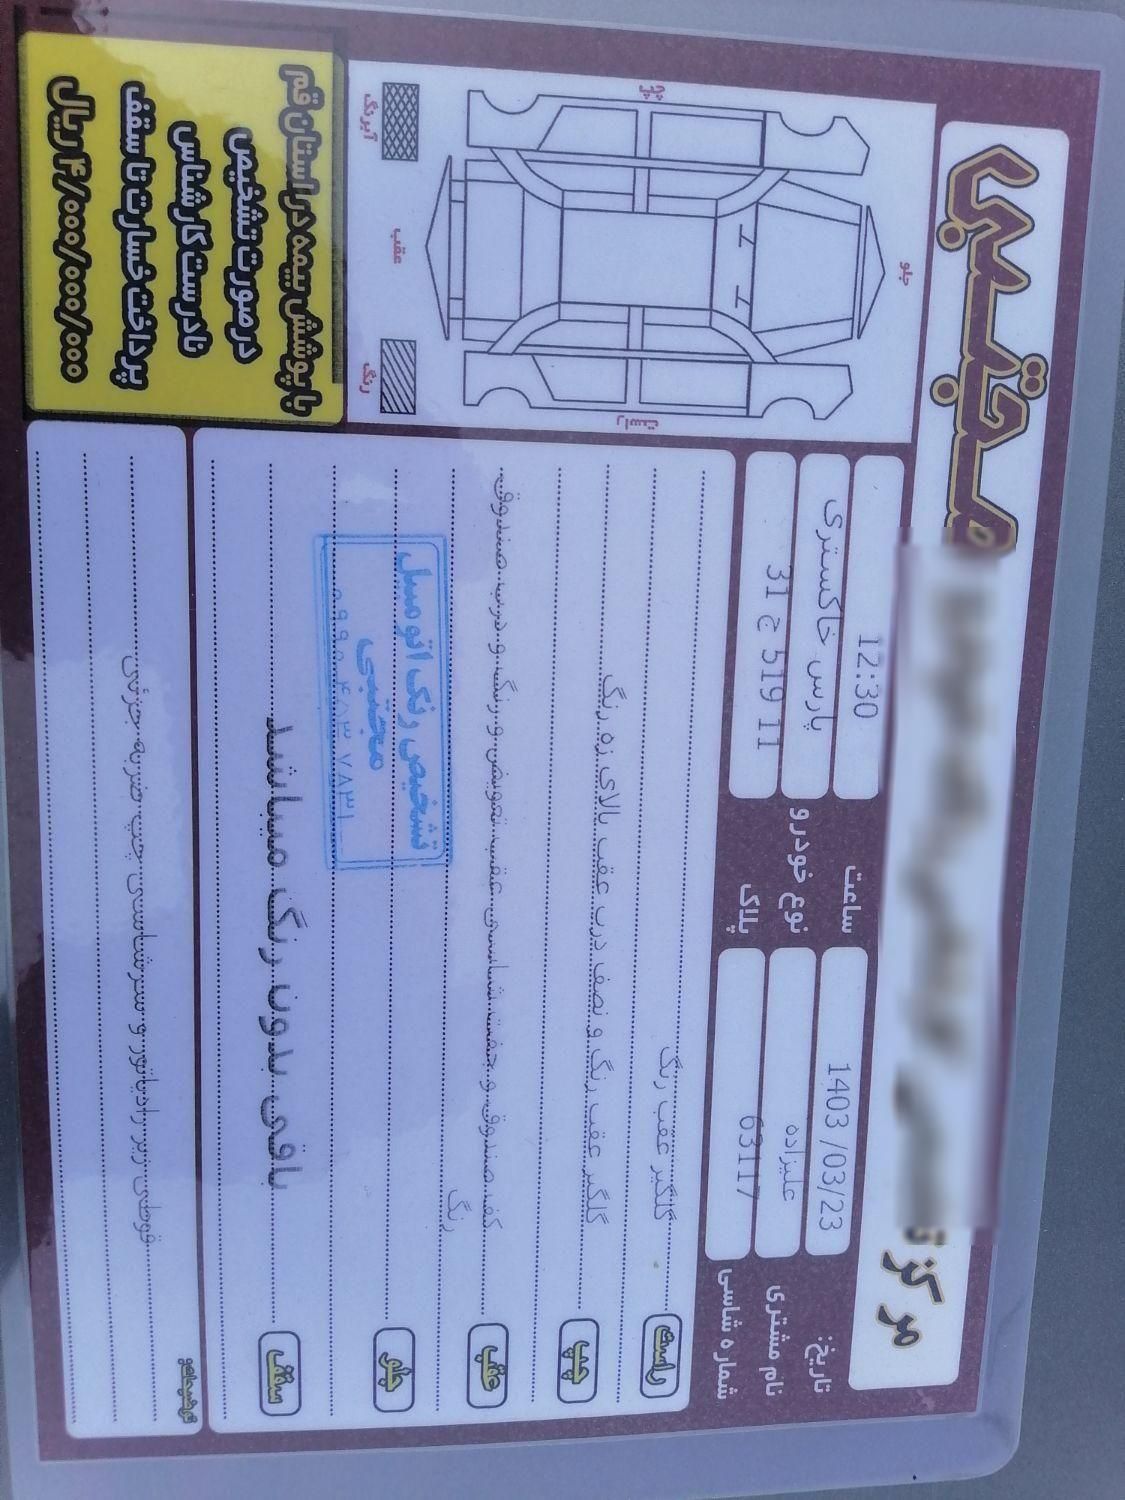 مرکز
مجتبی
تاریخ: 1403 /03/23
ساعت 12:30
نام مشتری علیزاده
نوع خودرو پارس خاکستری
شماره شاسی 63117
پلاک 31 ج 519 11
جلو
چپ
راست
عقب
آبرنگ
رنگ
با پوشش بیمه در استان قم
در صورت تشخیص
نادرست کارشناس
پرداخت خسارت تا سقف
۴/۰۰۰/۰۰۰/۰۰۰ ریال
راست گلگیر عقب رنگ
چپ گلگیر عقب رنگ و نصف درب عقب بالای زه رنگ
عقب کف صندوق و جفت شاسی عقب تعویض و رنگ و درب صندوق
رنگ
جلو
سقف باقی بدون رنگ میباشد
تشخیص رنگ اتومبیل
مجتبی
توضیحات
قوطی زیر رادیاتور و سرشاسی چپ ضربه جزئی